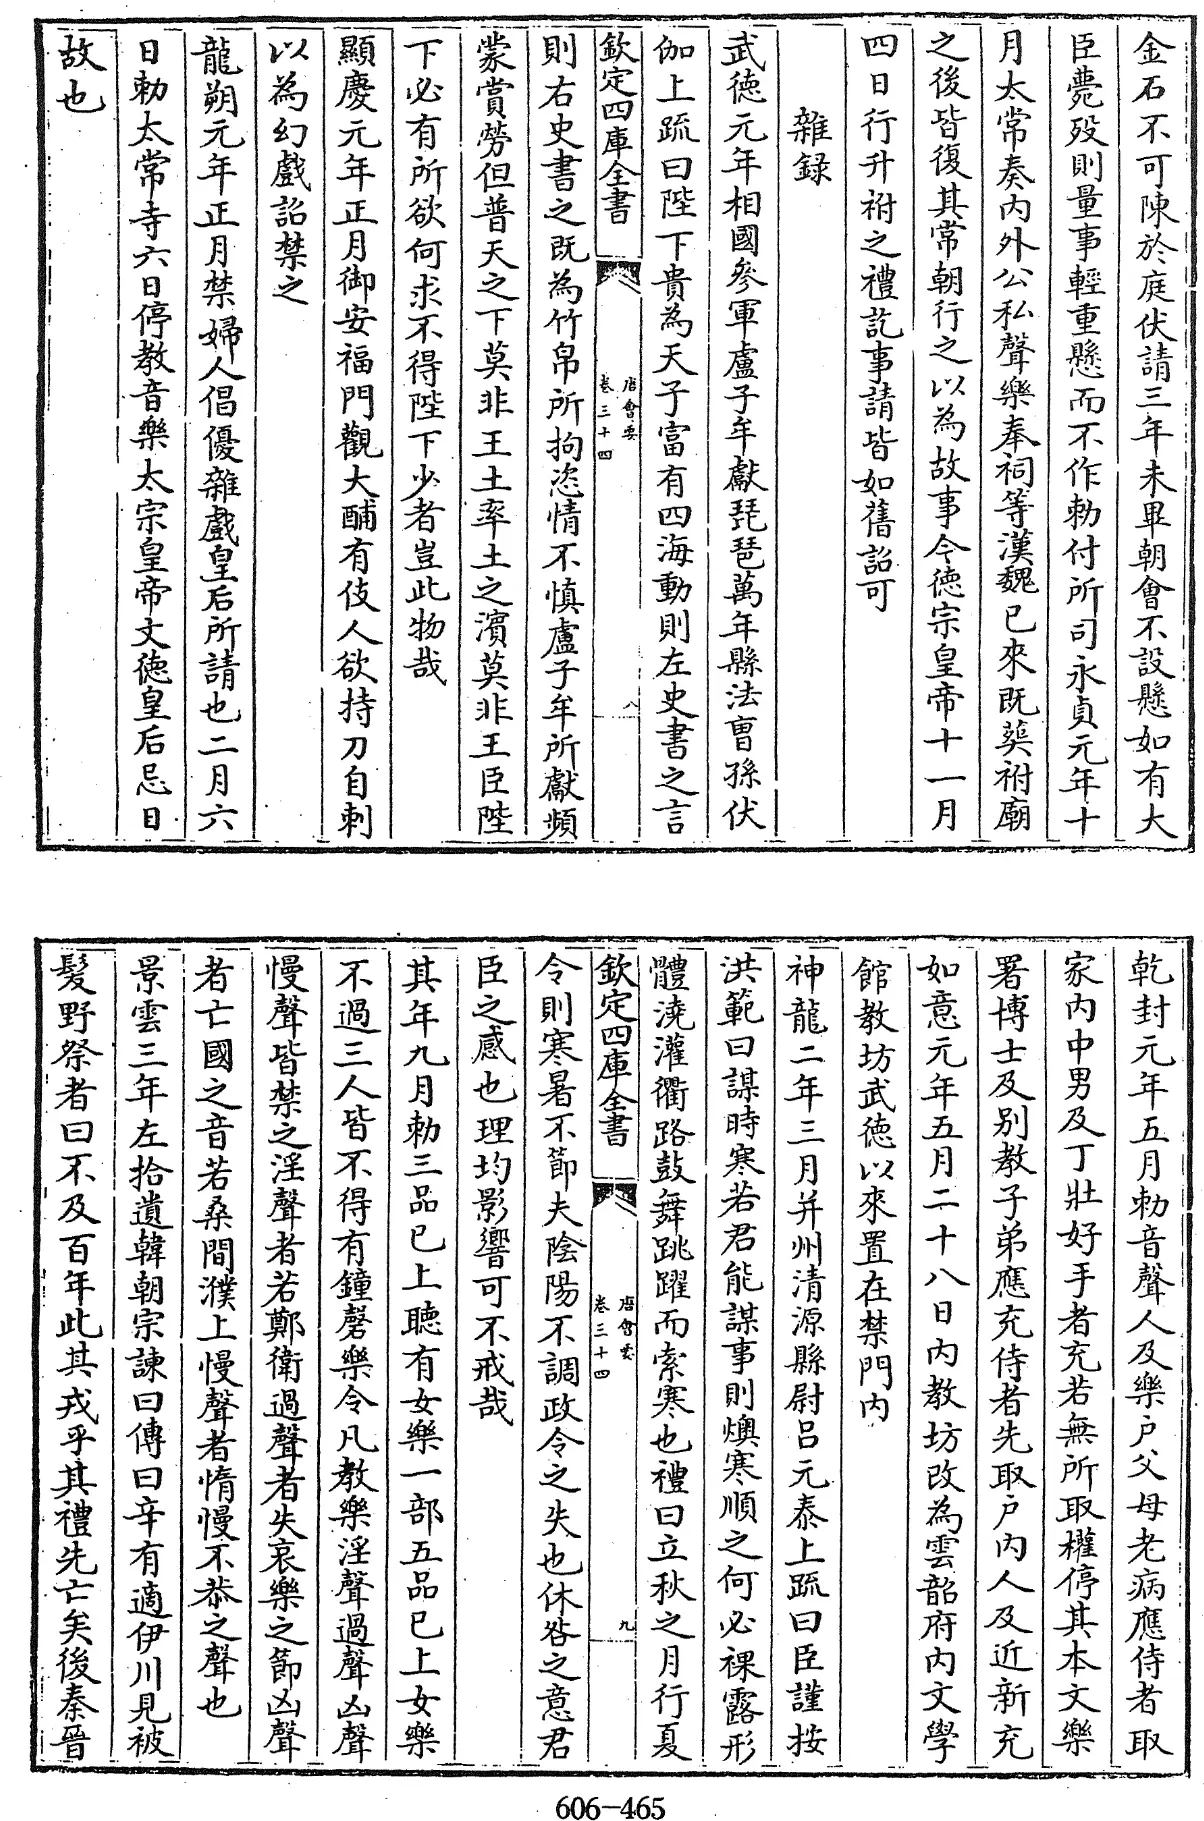 金石不可陳於庭伏請三年未畢朝會不設懸如有大
臣薨殁則量事輕重懸而不作勅付所司永貞元年十
月太常奏内外公私聲樂奉祠等漢魏已來既葬祔廟
之後皆復其常朝行之以為故事今德宗皇帝十一月
四日行升祔之禮訖事請皆如舊詔可
雜録
武德元年相國參軍盧子牟獻琵琶萬年縣法曹孫伏
伽上疏曰陛下貴為天子富有四海動則左史書之言
欽定四庫全書
唐會要
卷三十四
八
則右史書之既為竹帛所拘恣情不慎盧子牟所獻頻
蒙賞勞但普天之下莫非王土率土之濱莫非王臣陛
下必有所欲何求不得陛下少者豈此物哉
顯慶元年正月御安福門觀大酺有伎人欲持刀自刺
以為幻戲詔禁之
龍朔元年正月禁婦人倡優雜戲皇后所請也二月六
日勅太常寺六日停教音樂太宗皇帝文德皇后忌日
故也
乾封元年五月勅音聲人及樂户父母老病應侍者取
家内中男及丁壯好手者充若無所取權停其本文樂
署博士及别教子弟應充侍者先取户内人及近新充
如意元年五月二十八日内教坊改為雲韶府内文學
館教坊武德以來置在禁門内
神龍二年三月并州清源縣尉吕元泰上疏曰臣謹按
洪範曰謀時寒若君能謀事則燠寒順之何必裸露形
體澆灌衢路鼓舞跳躍而索寒也禮曰立秋之月行夏
欽定四庫全書
唐會要
卷三十四
九
令則寒暑不節夫陰陽不調政令之失也休咎之意君
臣之感也理均影響可不戒哉
其年九月勅三品已上聽有女樂一部五品已上女樂
不過三人皆不得有鐘磬樂令凡教樂淫聲過聲凶聲
慢聲皆禁之淫聲者若鄭衛過聲者失哀樂之節凶聲
者亡國之音若桑間濮上慢聲者惰慢不恭之聲也
景雲三年左拾遺韓朝宗諫曰傳曰辛有適伊川見被
髮野祭者曰不及百年此其戎乎其禮先亡矣後秦晉
606-465